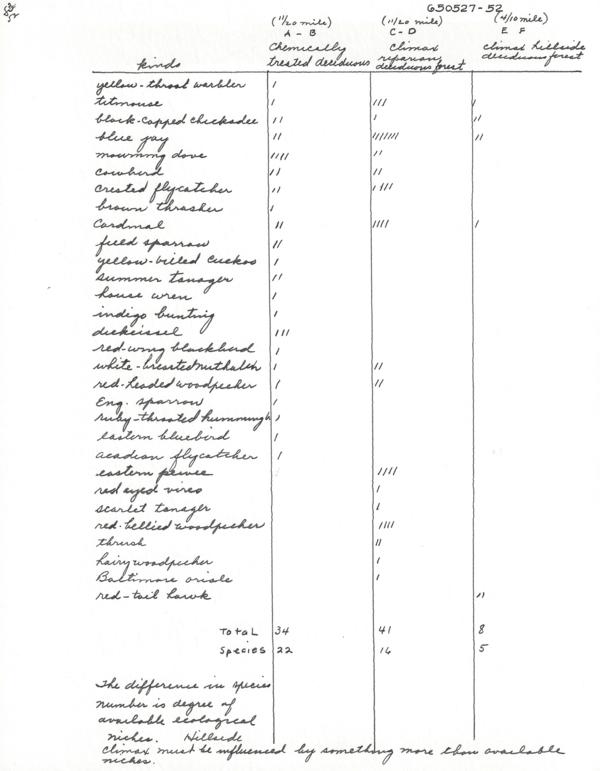 650527-52
(11/20 mile) (11/20 mile) (4/10 mile)
A - B C - D E F
Chemically Climax climax hillside
kinds treated deciduous riparian deciduous forest deciduous forest
yellow-throat warbler /
titmouse / /// /
black-capped chickadee // / //
blue jay // /////// //
mourning dove //// //
cowbird // //
crested flycatcher // ////
brown thrasher /
Cardinal // //// /
field sparrow //
yellow-billed cuckoo /
summer tanager //
house wren /
indigo bunting /
dickcissel ///
red-wing blackbird /
white-breasted nuthatch / //
red-headed woodpecker / //
Eng. sparrow /
ruby-throated humming b /
eastern bluebird /
acadian flycatcher /
eastern pewee ////
red eyed vireo /
scarlet tanager /
red-bellied woodpecker ////
thrush //
hairy woodpecker /
Baltimore oriole /
red-tail hawk //
Total 34 41 8
Species 22 16 5
The difference in species
number is degree of
available ecological
niches. Hillside
climax must be influenced by something more than available
niches.